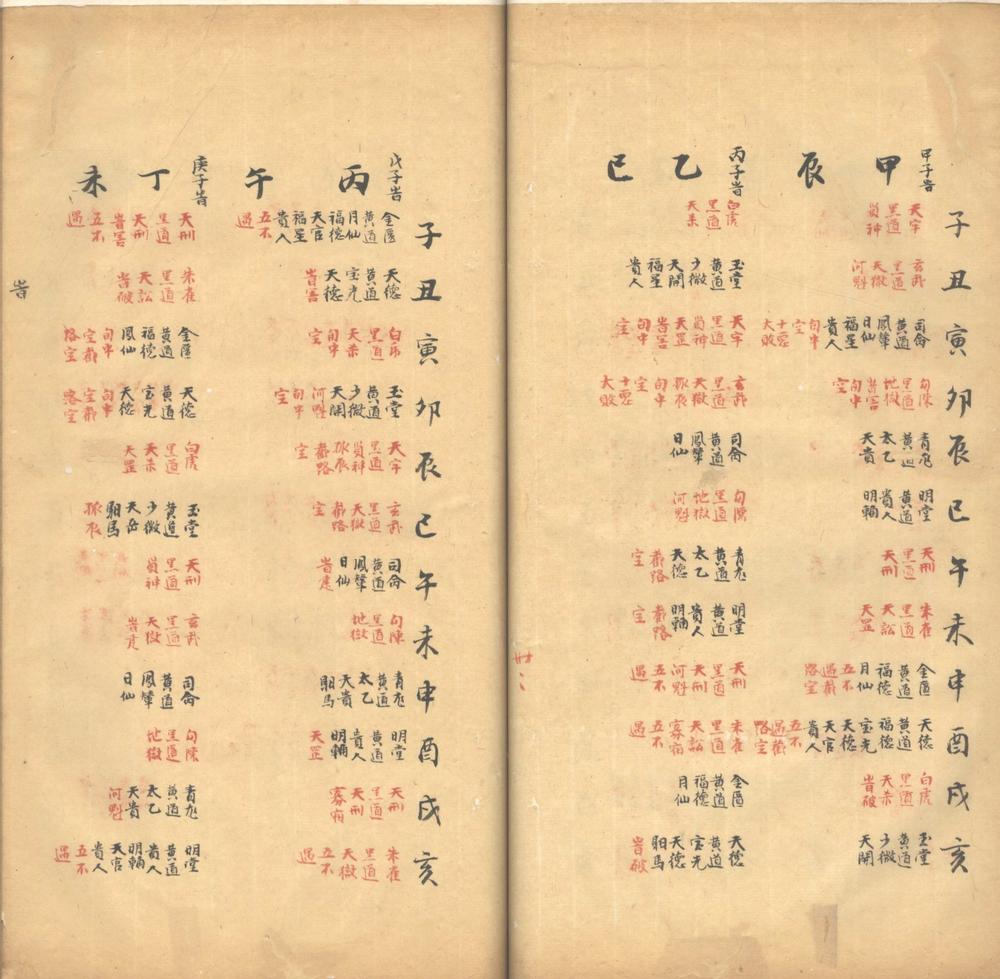 子
丑
寅
卯
辰
巳
午
未
申
酉
戌
亥
甲子旹
甲辰
天牢 黑道 貟神
玄武 黑道 天獄 河魁
司命 黄道 鳳輦 日仙 福星 貴人 旬中 空 十惡 大敗
勾陳 黑道 地獄 旹害 旬中 空
青龙 黄道 太乙 天貴
明堂 黄道 貴人 明輔
天刑 黑道 天刑
朱雀 黑道 天訟 天罡
金匱 黄道 福德 月仙 五不 遇截 路空
天德 黄道 福德 宝光 天德 天官 貴人 五不 遇截 路空
白虎 黑道 天杀 旹破
玉堂 黄道 少微 天開
丙子旹
乙巳
白虎 黑道 天杀
玉堂 黄道 少微 天開 福星 貴人
天牢 黑道 貟神 天罡 旹害 旬中 空
玄武 黑道 天獄 孤辰 旬中 空 十惡 大敗
司命 黄道 鳳輦 日仙
勾陳 黑道 地獄 河魁
青龙 黄道 太乙 天德 截路 空
明堂 黄道 貴人 明輔 截路 空
天刑 黑道 天刑 河魁 五不 遇
朱雀 黑道 天訟 寡宿 五不 遇
金匱 黄道 福德 月仙
天德 黄道 宝光 天德 馹馬 旹破
子
丑
寅
卯
辰
巳
午
未
申
酉
戌
亥
戊子旹
丙午
金匱 黄道 月仙 福德 天官 福星 貴人 五不 遇
天德 黄道 宝光 天德 旹害
白虎 黑道 天杀 旬中 空
玉堂 黄道 少微 天開 河魁 旬中 空
天牢 黑道 貟神 孤辰 截路 空
玄武 黑道 天獄 截路 空
司命 黄道 鳳輦 日仙 旹建
勾陳 黑道 地獄
青龙 黄道 太乙 天貴 馹馬
明堂 黄道 貴人 明輔 天罡
天刑 黑道 天刑 寡宿
朱雀 黑道 天獄 五不 遇
庚子旹
丁未
天刑 黑道 天刑 旹害 五不 遇
朱雀 黑道 天訟 旹破
金匱 黄道 福德 鳳仙 旬中 空截 路空
天德 黄道 宝光 天德 旬中 空截 路空
白虎 黑道 天杀 天罡
玉堂 黄道 少微 天岳 馹馬 孤辰
天刑 黑道 貟神
玄武 黑道 天獄
司命 黄道 鳳輦 日仙
勾陳 黑道 地獄
青龙 黄道 太乙 天貴 河魁
明堂 黄道 貴人 明輔 天官 貴人 五不 遇
旹